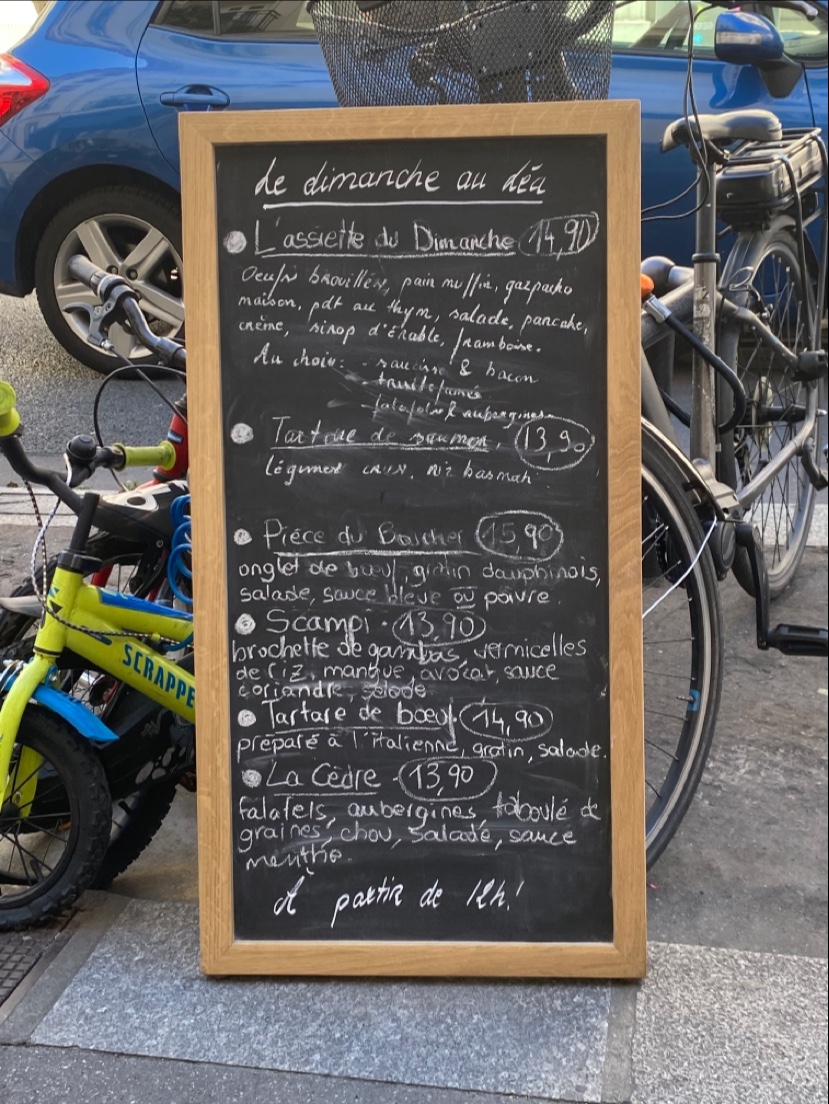 Le dimanche au Léa
L'assiette du Dimanche 14,90
Oeufs brouillés, pain muffin, gazpacho
maison, pdt au thym, salade, pancake,
crème, sirop d'érable, framboise.
Au choix: - saucisse & bacon
- truite fumée
- falafels & aubergines.
Tartare de saumon. 13,90
légumes crus, riz basmati
Pièce du Boucher 15,90
onglet de bœuf, gratin dauphinois,
salade, sauce bleue ou poivre.
Scampi - 13,90
brochette de gambas, vermicelles
de riz, mangue, avocat, sauce
coriandre, salade
Tartare de bœuf. 14,90
préparé à l'italienne, gratin, salade.
SCRAPPE
La Cèdre - 13,90
falafels, aubergines, taboulé de
graines, chou, salade, sauce
menthe.
À partir de 12h!